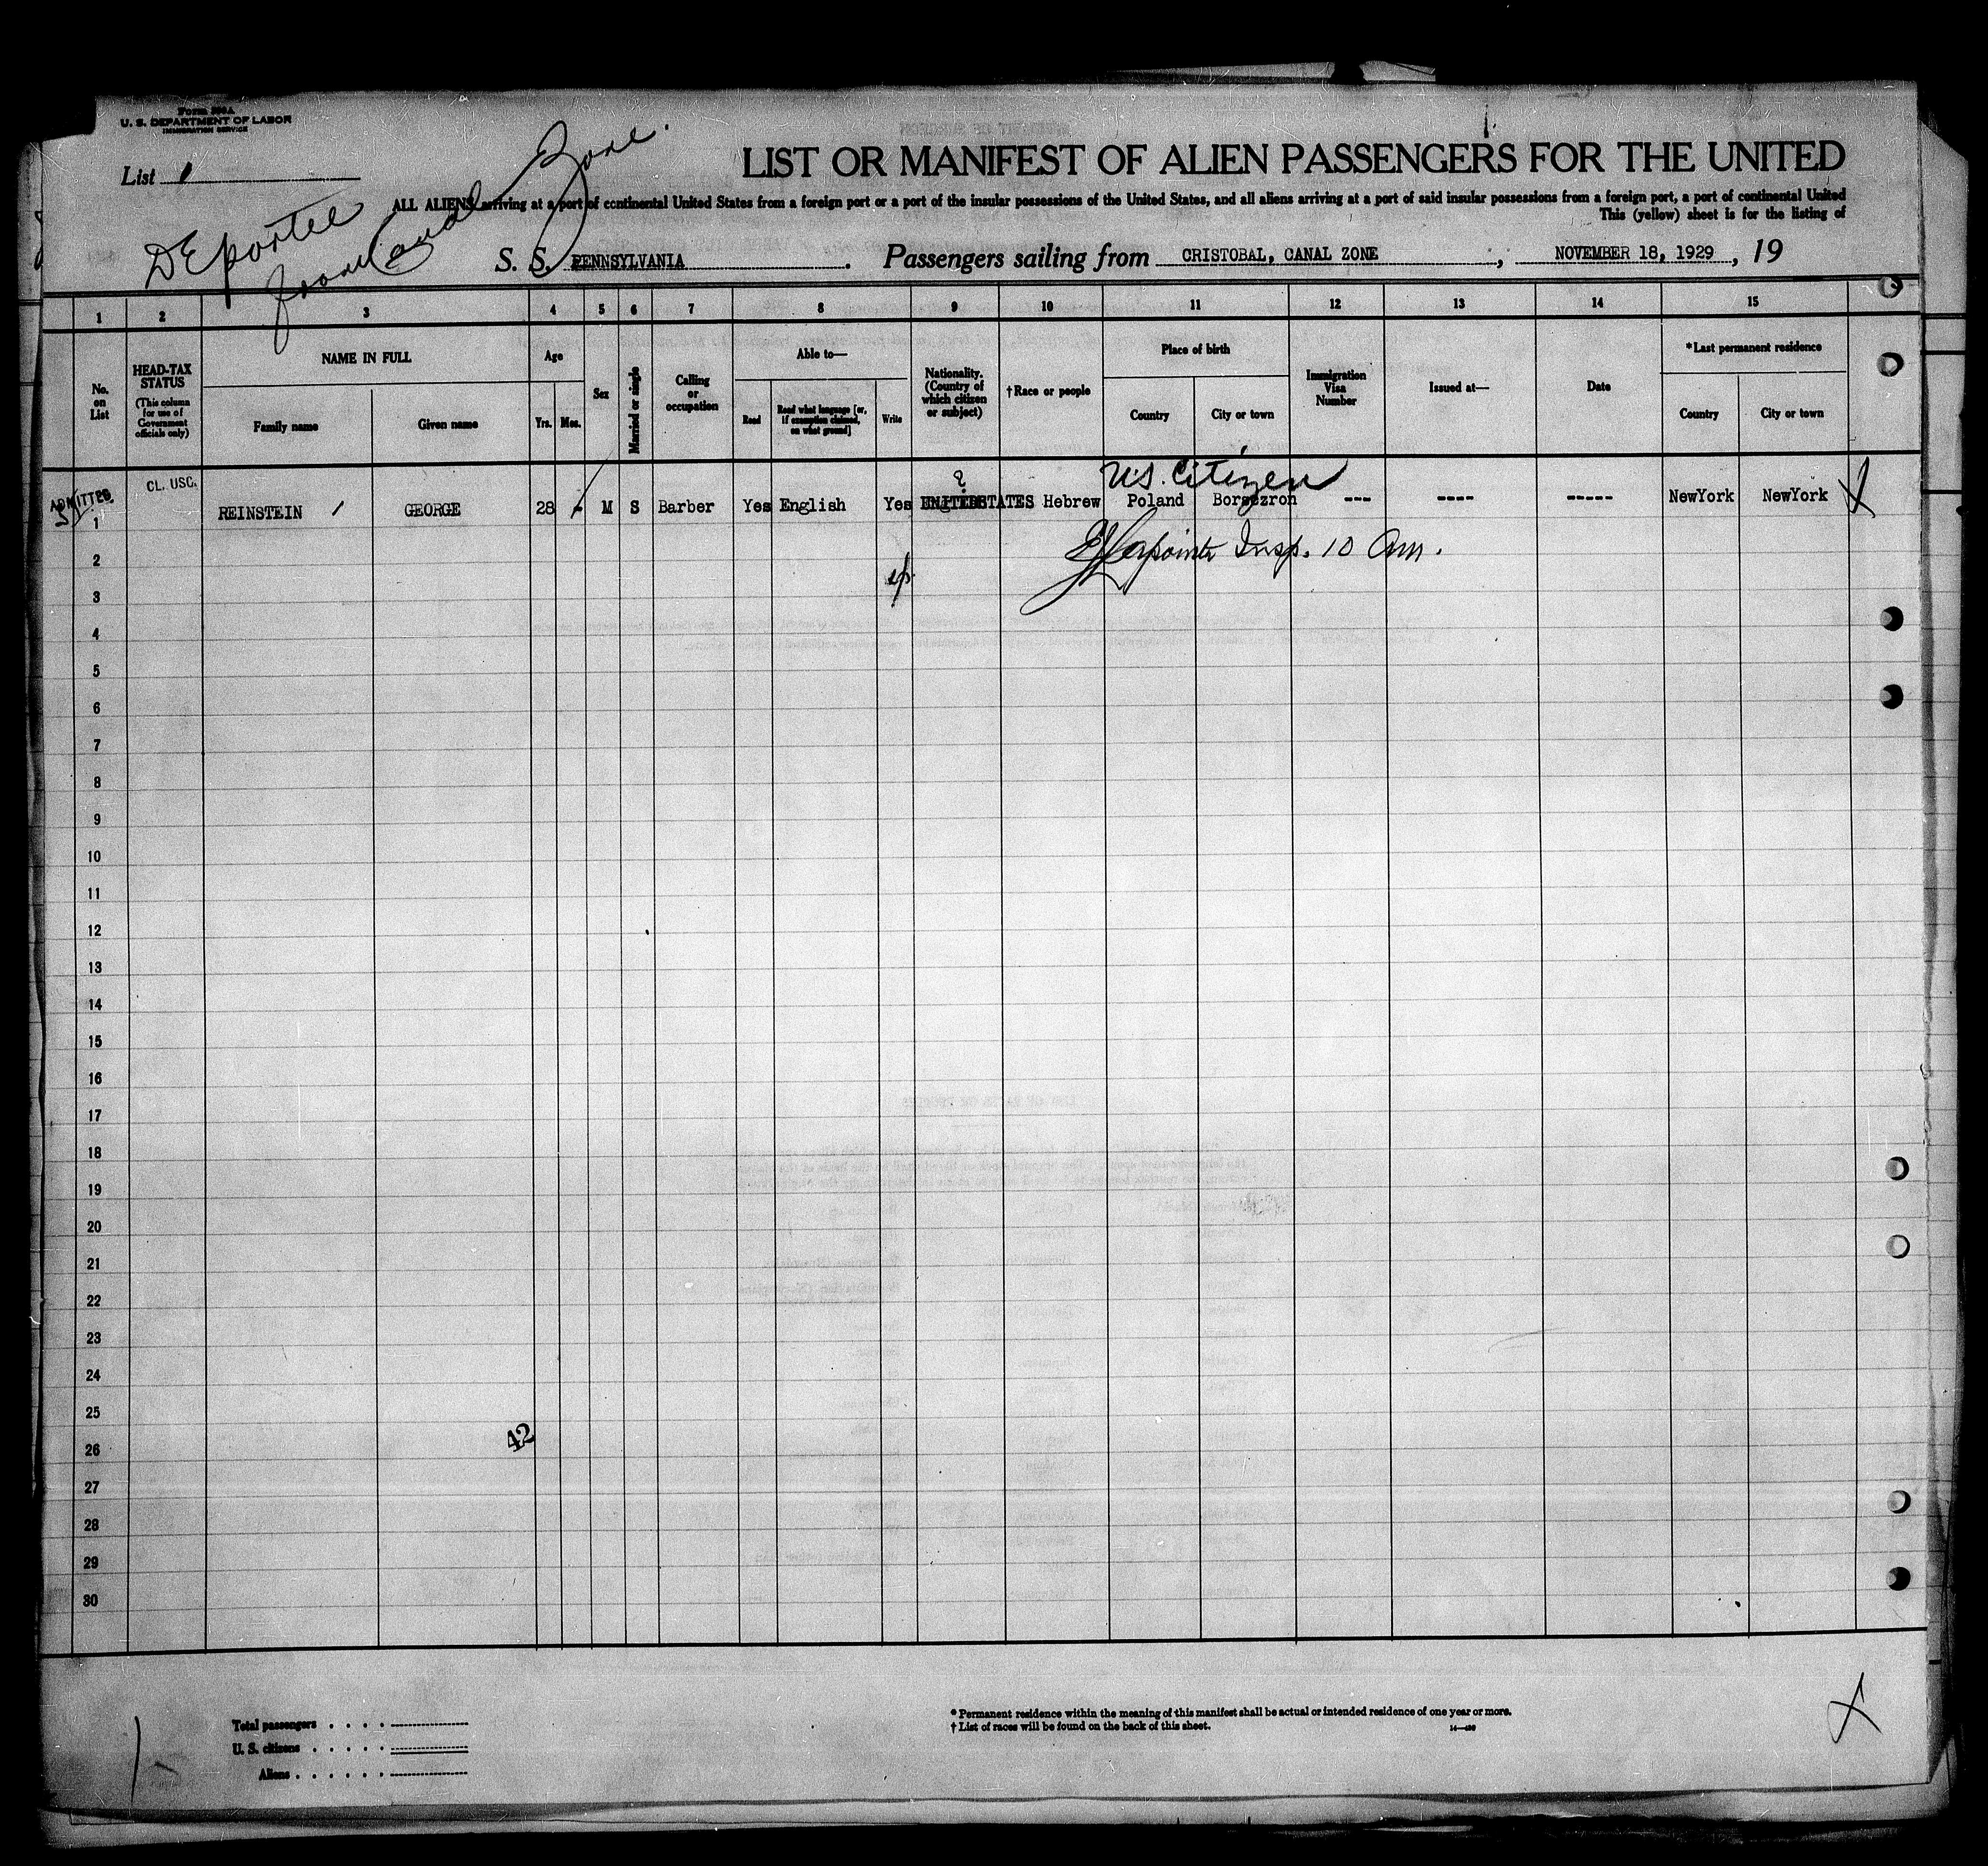 Form 500A
U. S. DEPARTMENT OF LABOR
IMMIGRATION SERVICE
List 1
Deportee
from Canal Zone.
LIST OR MANIFEST OF ALIEN PASSENGERS FOR THE UNITED
ALL ALIENS arriving at a port of continental United States from a foreign port or a port of the insular possessions of the United States, and all aliens arriving at a port of said insular possessions from a foreign port, a port of continental United
This (yellow) sheet is for the listing of
S. S. PENNSYLVANIA. Passengers sailing from CRISTOBAL, CANAL ZONE, NOVEMBER 18, 1929, 19
1 2 3 4 5 6 7 8 9 10 11 12 13 14 15
No. on List
HEAD-TAX STATUS (This column for use of Government officials only)
NAME IN FULL
Family name
Given name
Age
Yrs. Mos.
Sex
Married or single
Calling or occupation
Able to—
Read
Read what language [or, if exemption claimed, on what ground]
Write
Nationality. (Country of which citizen or subject)
†Race or people
Place of birth
Country
City or town
Immigration Visa Number
Issued at—
Date
*Last permanent residence
Country
City or town
ADMITTED CL. USC. ? U.S. Citizen
1 REINSTEIN / GEORGE 28 - M S Barber Yes English Yes UNITEDSTATES Hebrew Poland Borsezron --- ---- ----- NewYork NewYork
2 Lapointe Insp. 10 am.
3
4
5
6
7
8
9
10
11
12
13
14
15
16
17
18
19
20
21
22
23
24
25
42
26
27
28
29
30
Total passengers . . . .
U. S. citizens . . . . .
Aliens . . . . . .
* Permanent residence within the meaning of this manifest shall be actual or intended residence of one year or more.
† List of races will be found on the back of this sheet.